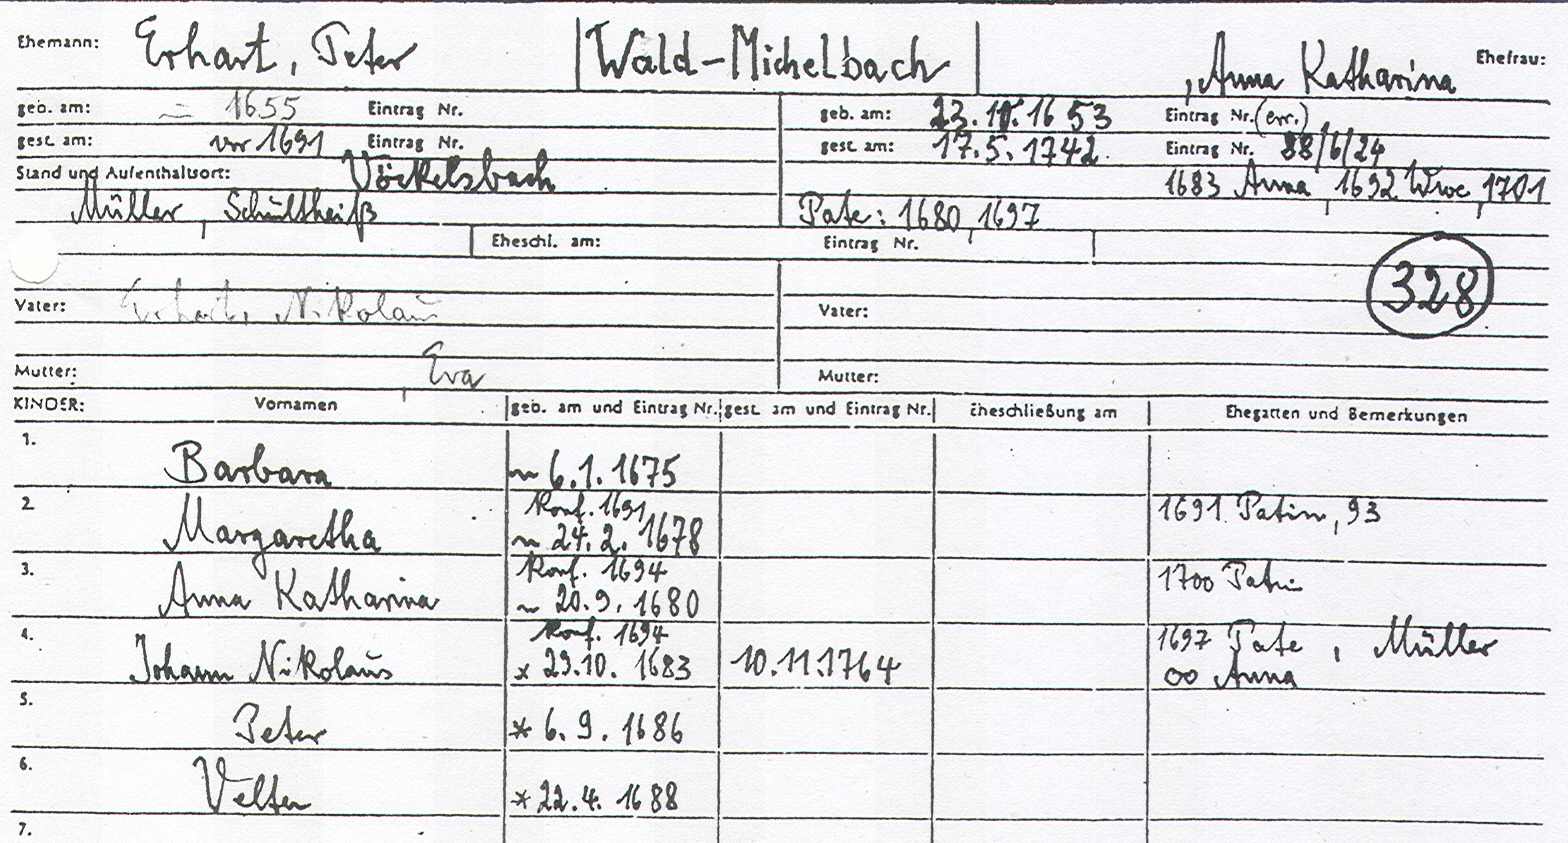 Ehemann: Erhart, Peter Wald-Michelbach , Anna Katharina Ehefrau:
geb. am: = 1655 Eintrag Nr. geb. am: 1653 Eintrag Nr. (err.)
gest. am: vor 1691 Eintrag Nr. gest. am: 17.5.1742 Eintrag Nr. 88/6/24
Stand und Aufenthaltsort: Vöckelsbach 1683 Anna, 1692 Wwe, 1701
Müller, Schultheiß Pate: 1680, 1697
Eheschl. am: Eintrag Nr.
328
Vater: Erhart, Nikolaus Vater:
Mutter: , Eva Mutter:
KINDER: Vornamen geb. am und Eintrag Nr. gest. am und Eintrag Nr. Eheschließung am Ehegatten und Bemerkungen
1. Barbara ~ 6.1.1675
Konf. 1691
2. Margaretha ~ 24.2.1678 1691 Patin, 93
Konf. 1694
3. Anna Katharina ~ 20.9.1680 1700 Patin
Konf. 1694 1697 Pate, Müller
4. Johann Nikolaus * 29.10.1683 10.11.1764 oo Anna
5. Peter * 6.9.1686
6. Velten * 22.4.1688
7.